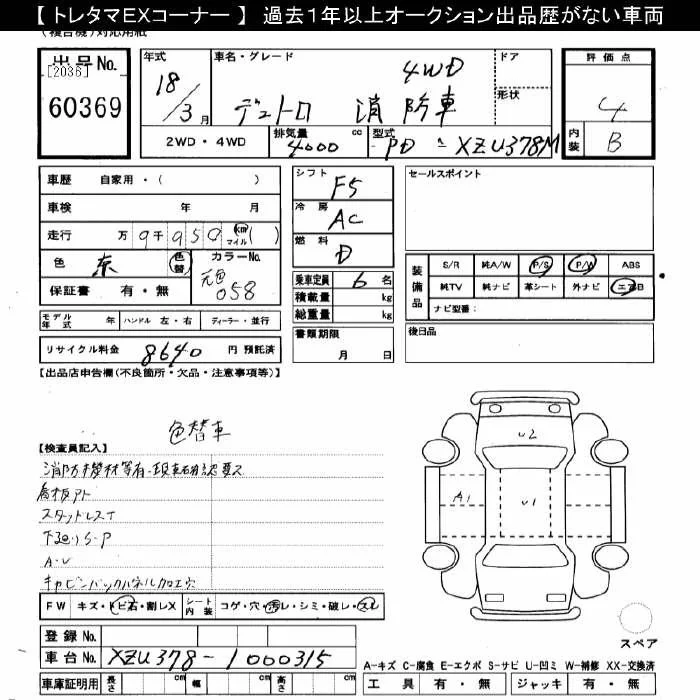 【トレタマEXコーナー】 過去1年以上オークション出品歴がない車両
(複合機)対応用紙
出品No.
[2036]
60369
年式
18/3月
車名・グレード
4WD
デュトロ 消防車
ドア
形状
2WD・4WD
排気量
4000 cc
型式
PD-XZU378M
評価点
4
内装
B
車歴 自家用・( )
車検 年 月
走行 万9千950 km マイル( )
色 赤 色替
カラーNo.
元色
058
保証書 有・無
モデル年式 年 ハンドル 左・右 ディーラー・並行
リサイクル料金 8640 円 預託済
シフト
F5
冷房
AC
燃料
D
乗車定員 6 名
積載量 kg
総重量 kg
書類期限
月 日
セールスポイント
装備品
S/R 純A/W P/S P/W ABS
純TV 純ナビ 革シート 外ナビ エアB
ナビ型番:
後日品
【出品店申告欄(不良箇所・欠品・注意事項等)】
色替車
【検査員記入】
消防機材等有・現車確認要ス
スタッドレスT
下廻りS・P
A・U
キャビンバックパネル加工穴
FW キズ・トビ石・割レX
シート内装 コゲ・穴・汚レ・シミ・破レ・スレ
登録No.
車台No. XZU378-1000315
車庫証明用 長さ cm 幅 cm 高さ cm
U2
A1
U1
スペア
A-キズ C-腐食 E-エクボ S-サビ U-凹ミ W-補修 XX-交換済
工具 有・無 ジャッキ 有・無